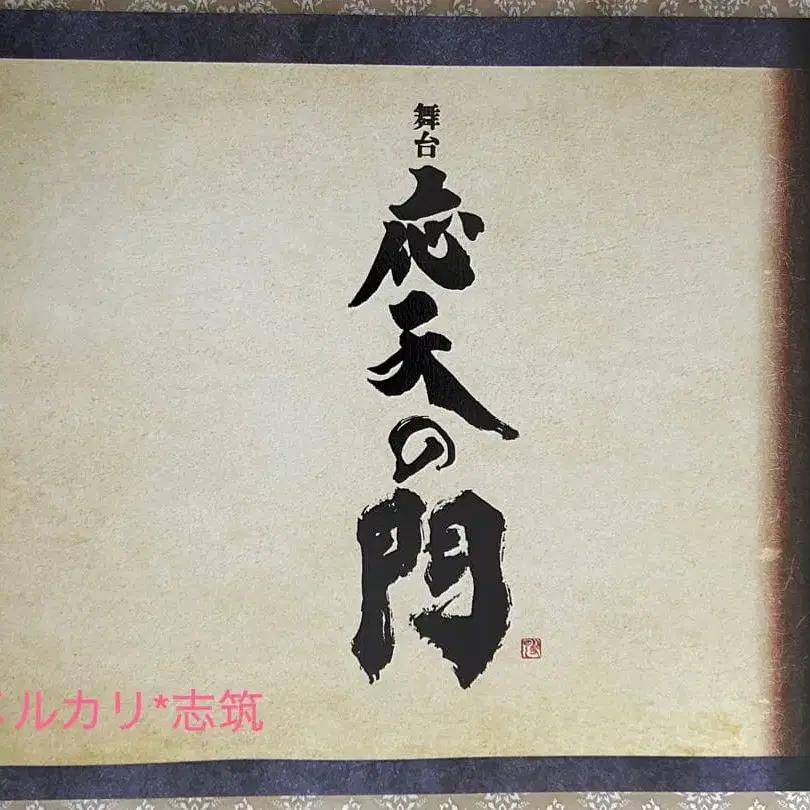 舞台
応天の門
メルカリ*志筑